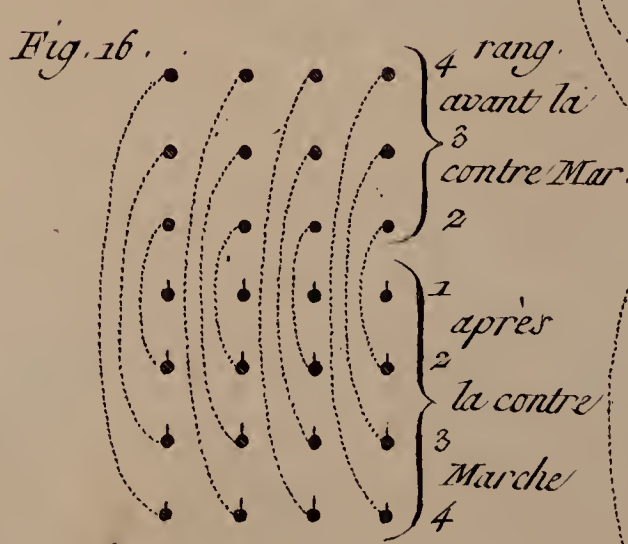 Fig. 16.
4 rang.
avant la
3
contre Mar.
2
1
après
2
la contre
3
Marche
4